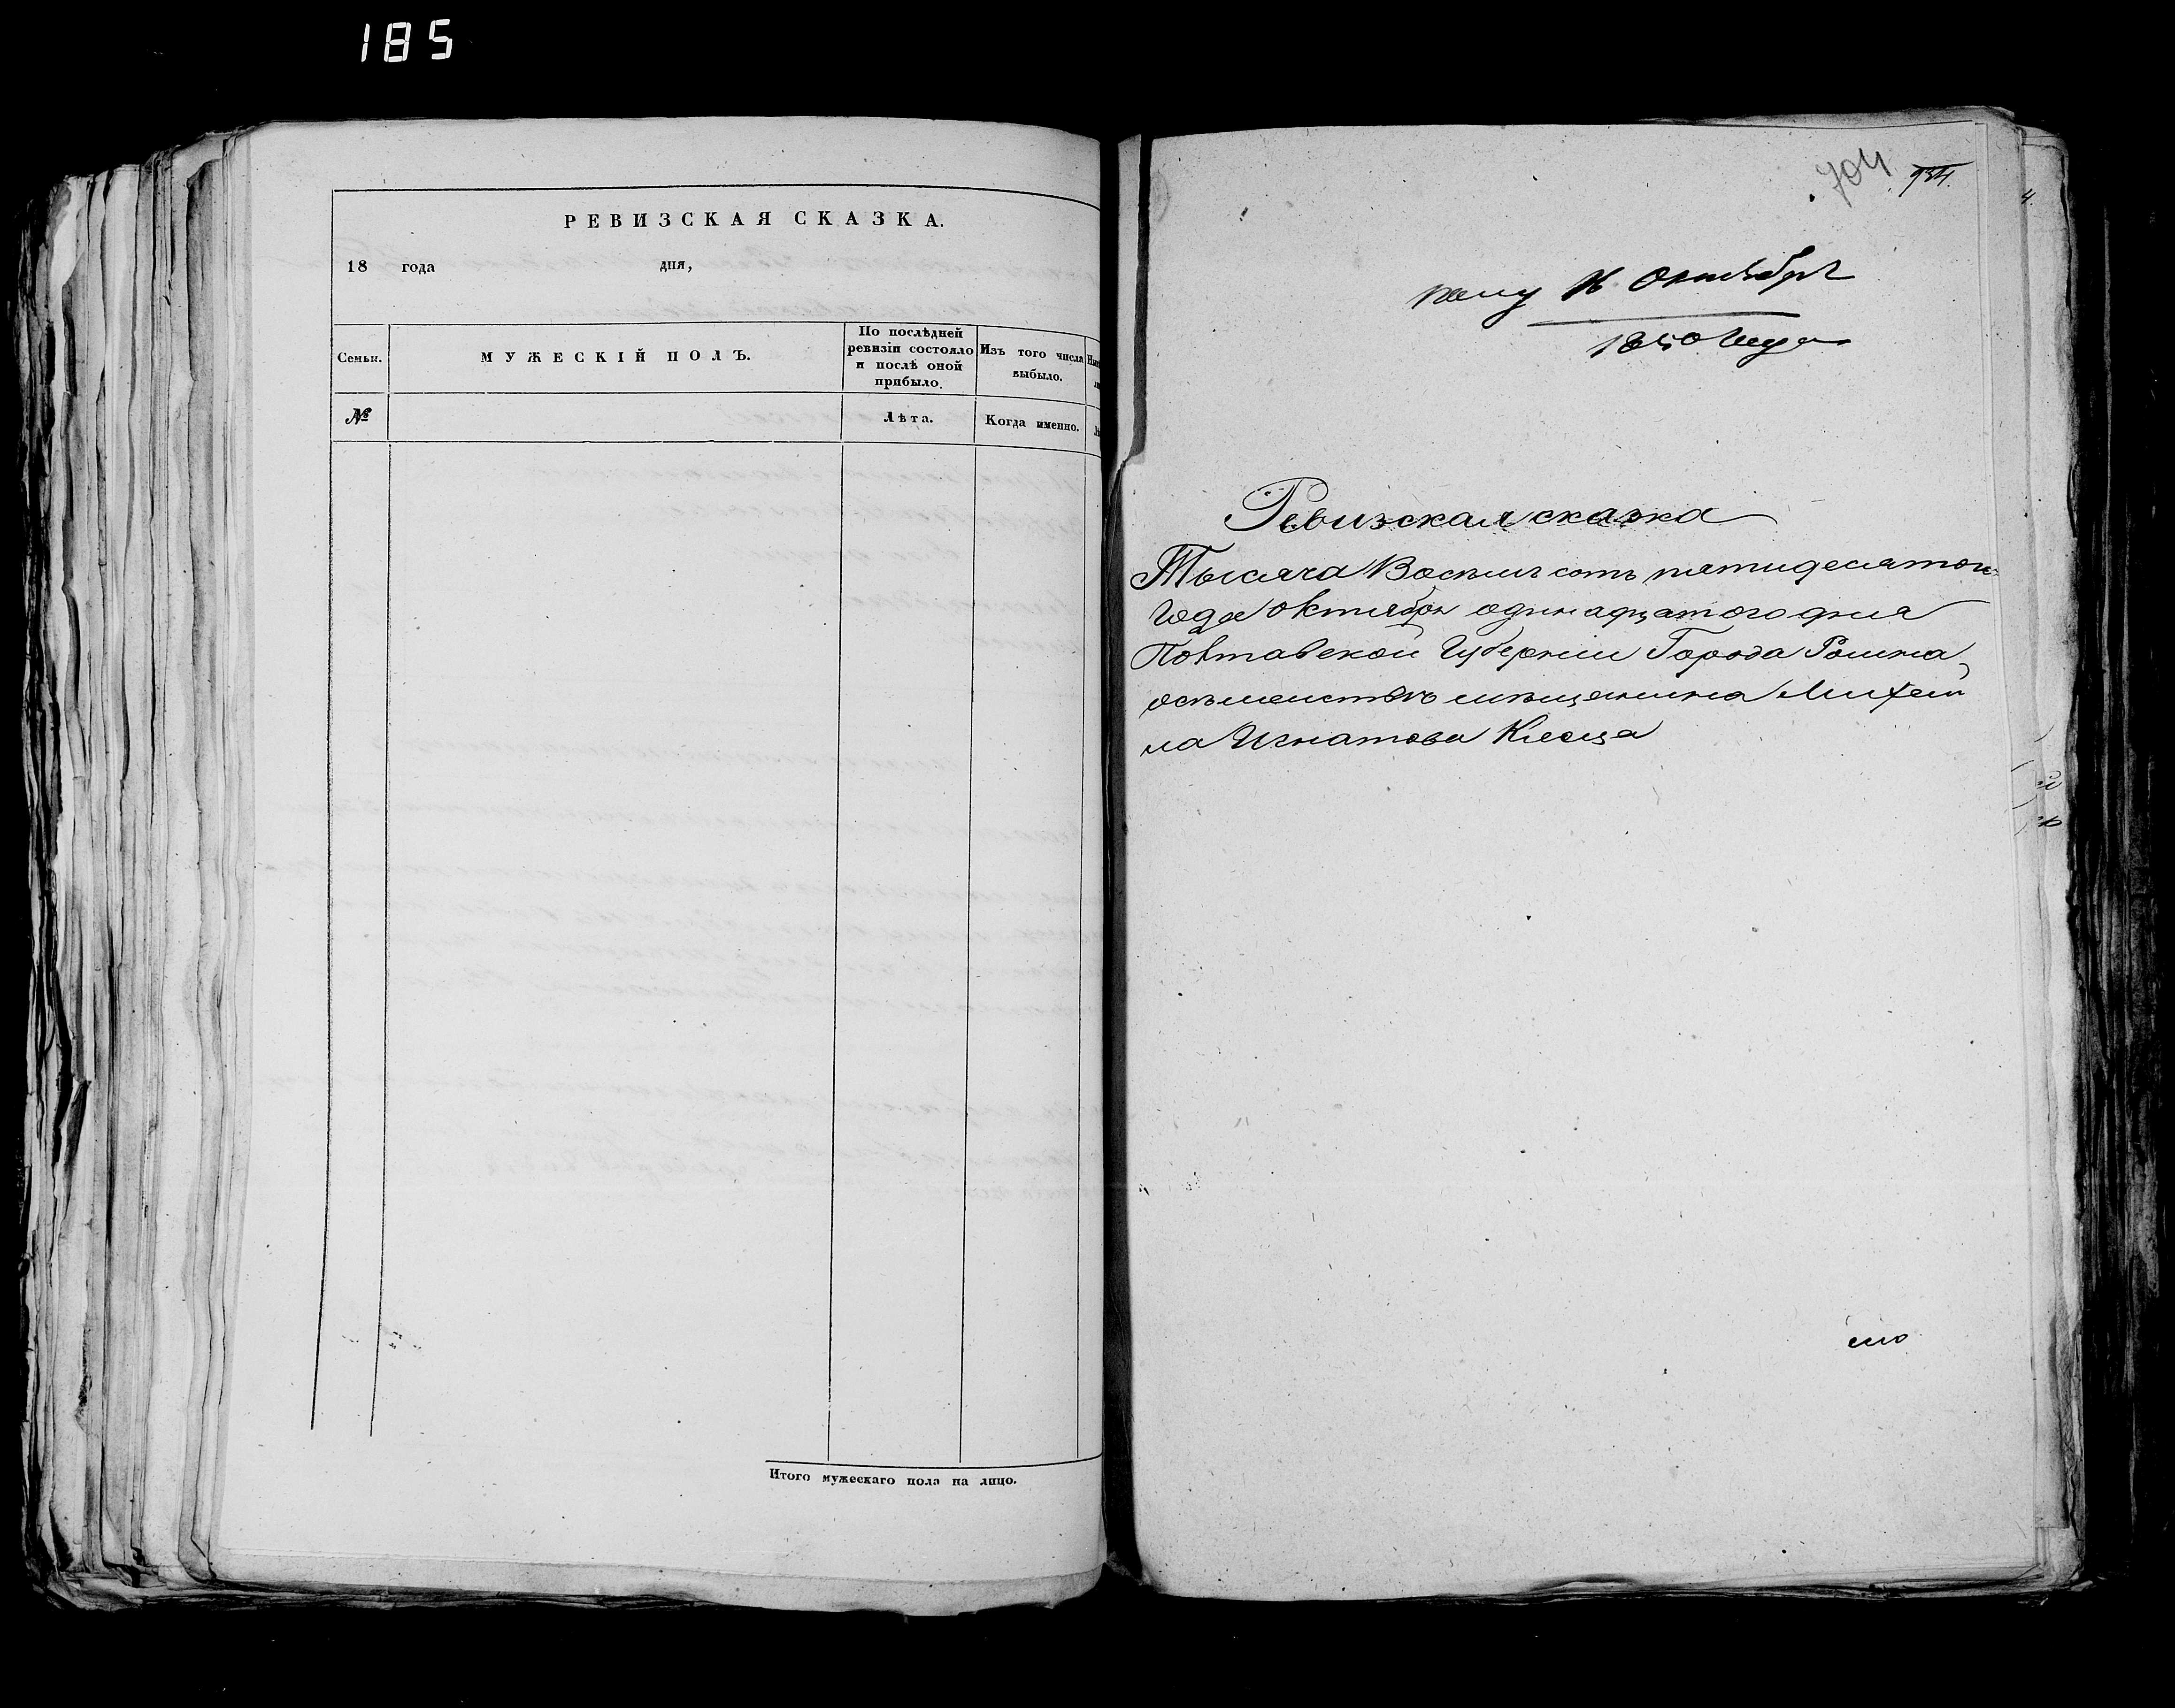 185
РЕВИЗСКАЯ СКАЗКА.
18 года дня,
Семьи.
МУЖЕСКІЙ ПОЛЪ.
По послѣдней
ревизіи состояло
и послѣ оной
прибыло.
Изъ того числа
выбыло.
№
Лѣта.
Когда именно.
Итого мужескаго пола на лицо.
704
934.
Октября
1850 Года
Ревизская сказка
Тысяча Восемь сотъ пятидесятого
Года Октября одинадцатого дня
Полтавской Губернии Города Ромна
о семействѣ мѣщанина Михай
ла Игнатова